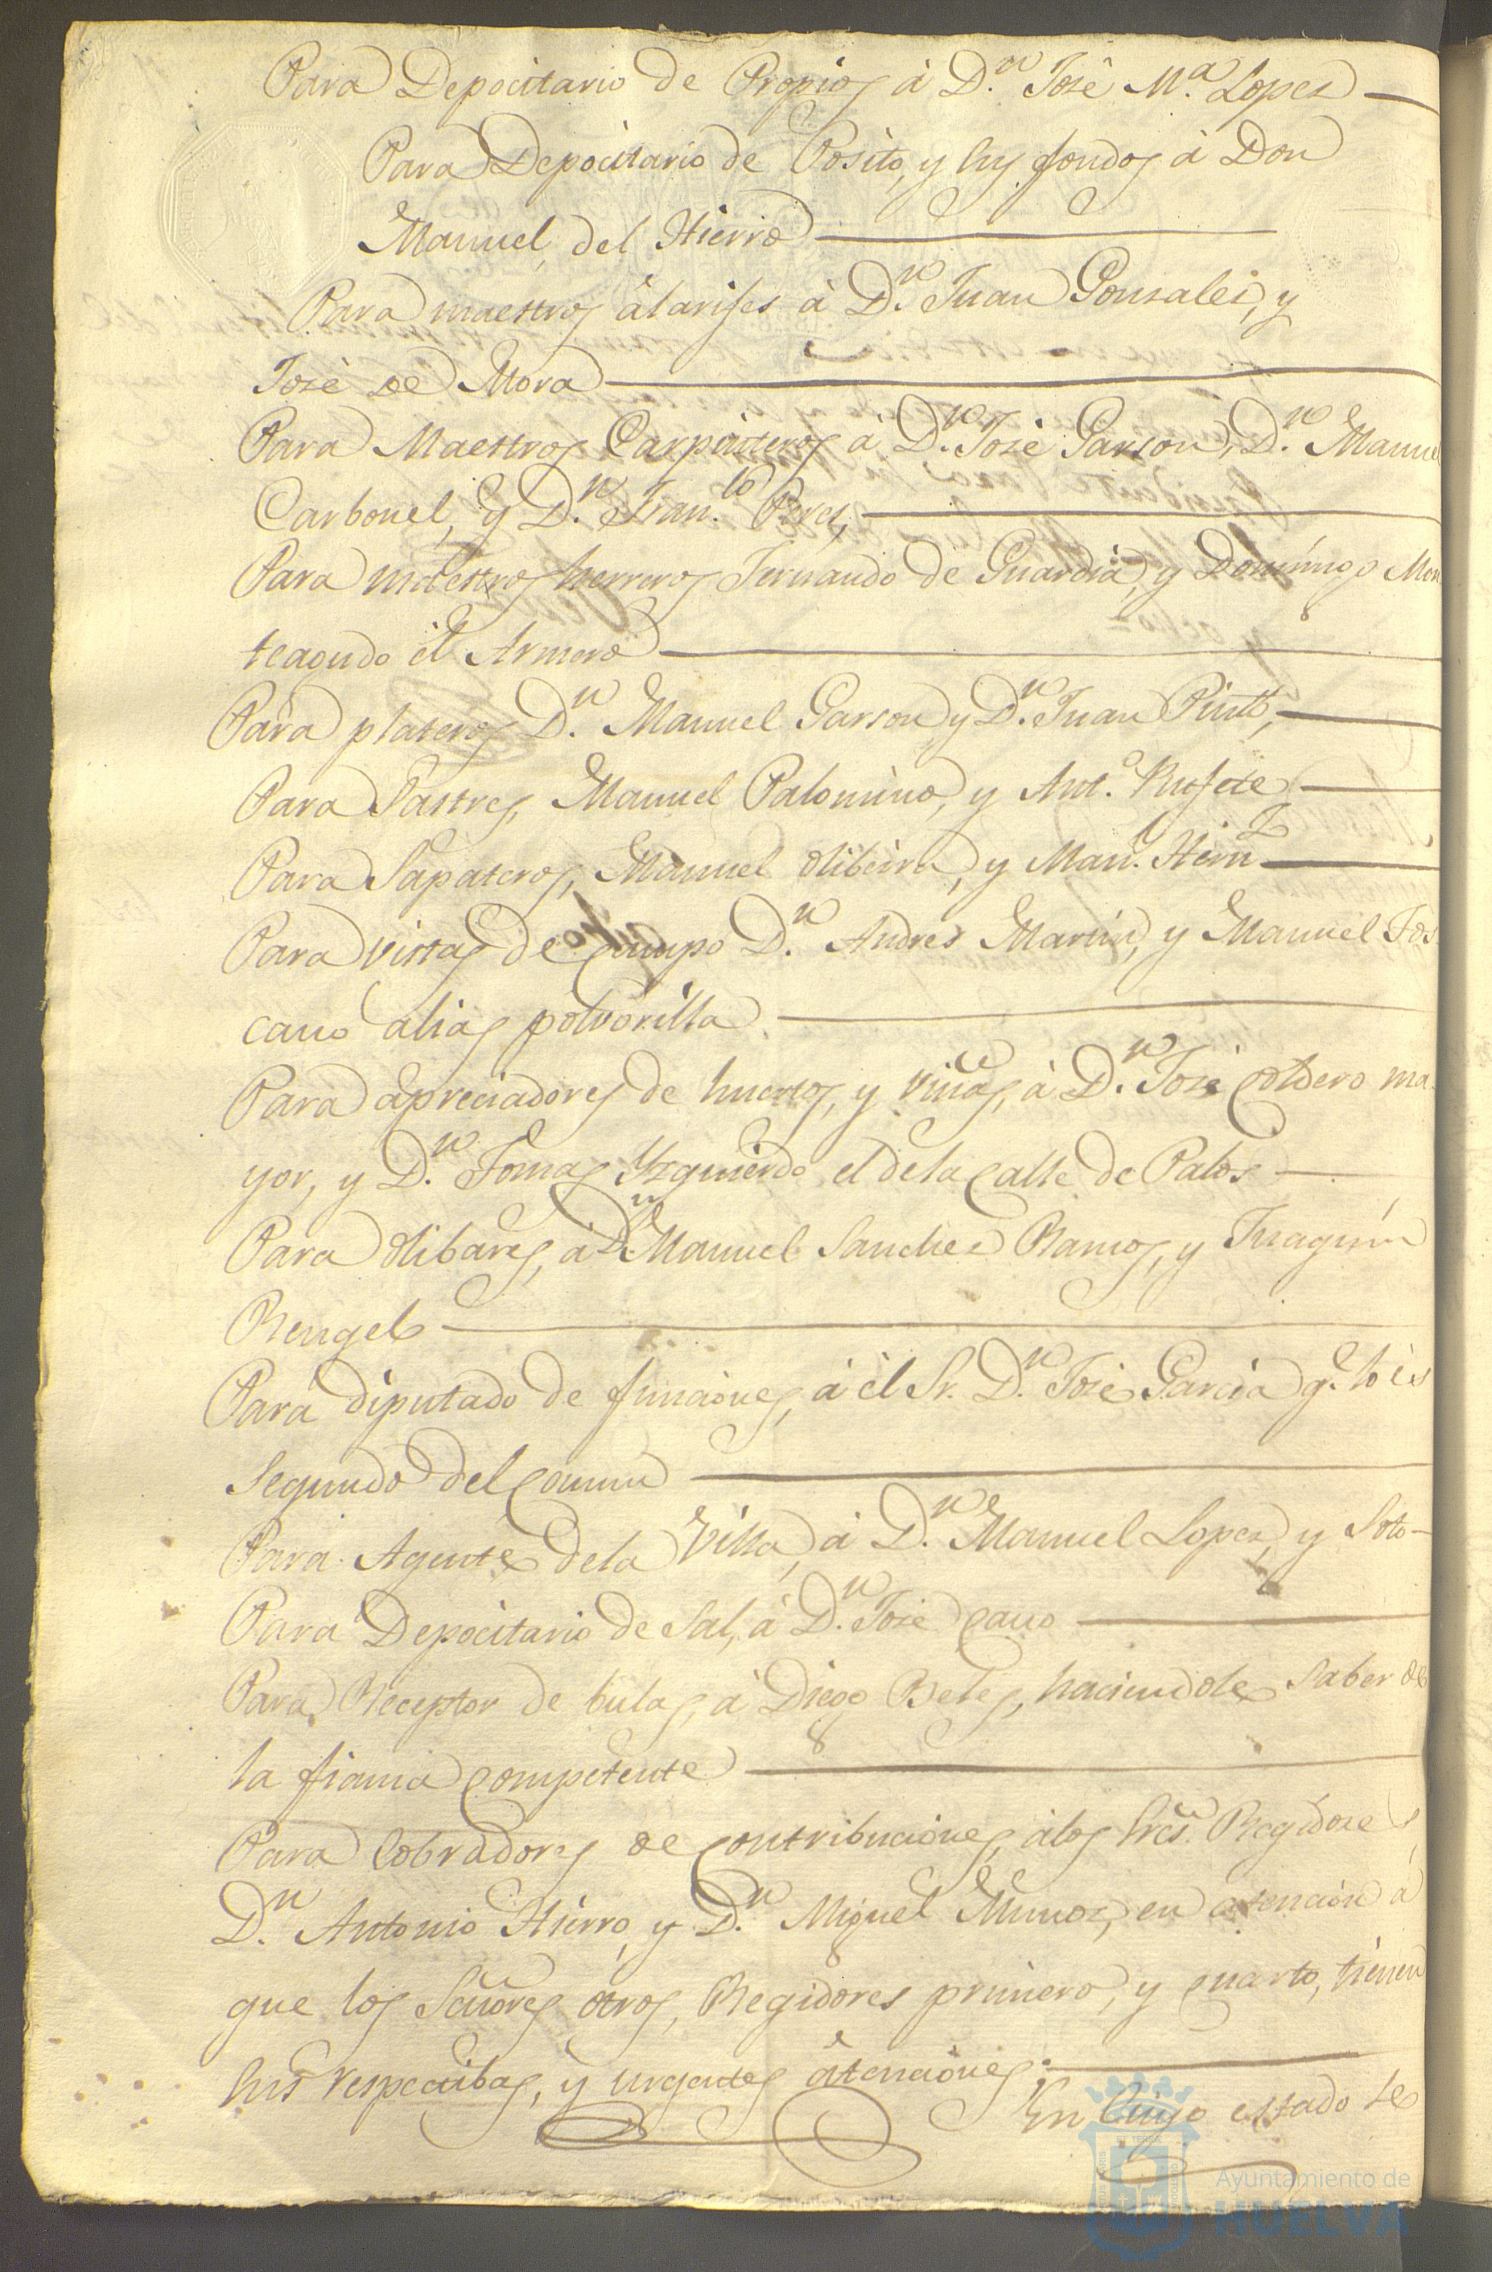 Para Depocitario de Propios á D.n José M.a Lopez
Para Depocitario de Posito, y sus fondos á Don
Manuel del Hierro
Para maestros álarifes á D.n Juan Gonsalez, y
José de Mora
Para Maestros Carpinteros á D.n José Garson, D.n Manuel
Carbonel, y D.n Fran.co Pres,
Para maestros herreros Fernando de Guardia, y Domingo Mon
teagudo él Armero
Para plateros D.n Manuel Garson y D.n Juan Pinto,
Para Sastres, Manuel Palomino, y Ant.o Rufete
Para Sapateros, Manuel Olibeira, y Man.l Hern.z
Para vistas de Campo D.n Andres Martin, y Manuel Tos
cano alias polvorilla
Para apreciadores de huertos, y viñas, á D.n José Coldero ma
yor, y D.n Tomas Yzquierdo el de la Calle de Palos
Para olibares, á D.n Manuel Sanchez Ramos, y Juaquin
Rengel
Para diputado de funciones, á él Sr. D.n José Garcia q.e lo és
segundo del Comun
Para Agente dela Villa, á D.n Manuel Lopez, y Soto
Para Depocitario de Sal, á D.n José Cano
Para Receptor de bulas, á Diego Beles, haciendole saber dé
la fianza Competente
Para Cobradores de Contribuciones, álos Sres. Regidores
D.n Antonio Hierro, y D.n Miguel Munoz, en atencion á
que los Señores otros, Regidores primero, y quarto, tienen
sus respectibas, y urgentes átenciones.
En Cuyo estado se
Ayuntamiento de
HUELVA